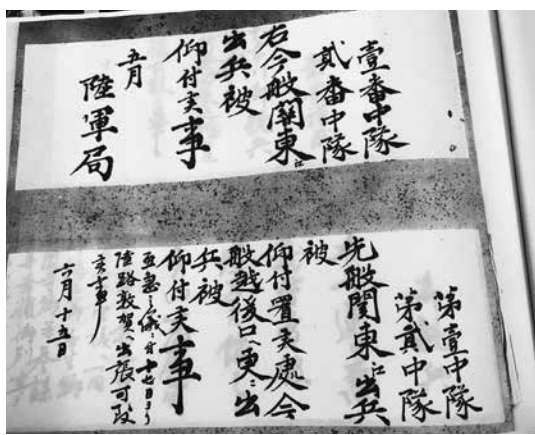 壹番中隊
貳番中隊
右今般関東江
出兵被
仰付候事
五月
陸軍局
第壹中隊
第貳中隊
先般関東江出兵
被
仰付置候處今
般越後口へ更ニ出
兵被
仰付候事
至急之儀ニ付十七日ヨリ
陸路敦賀へ出張可致
候事
六月十五日